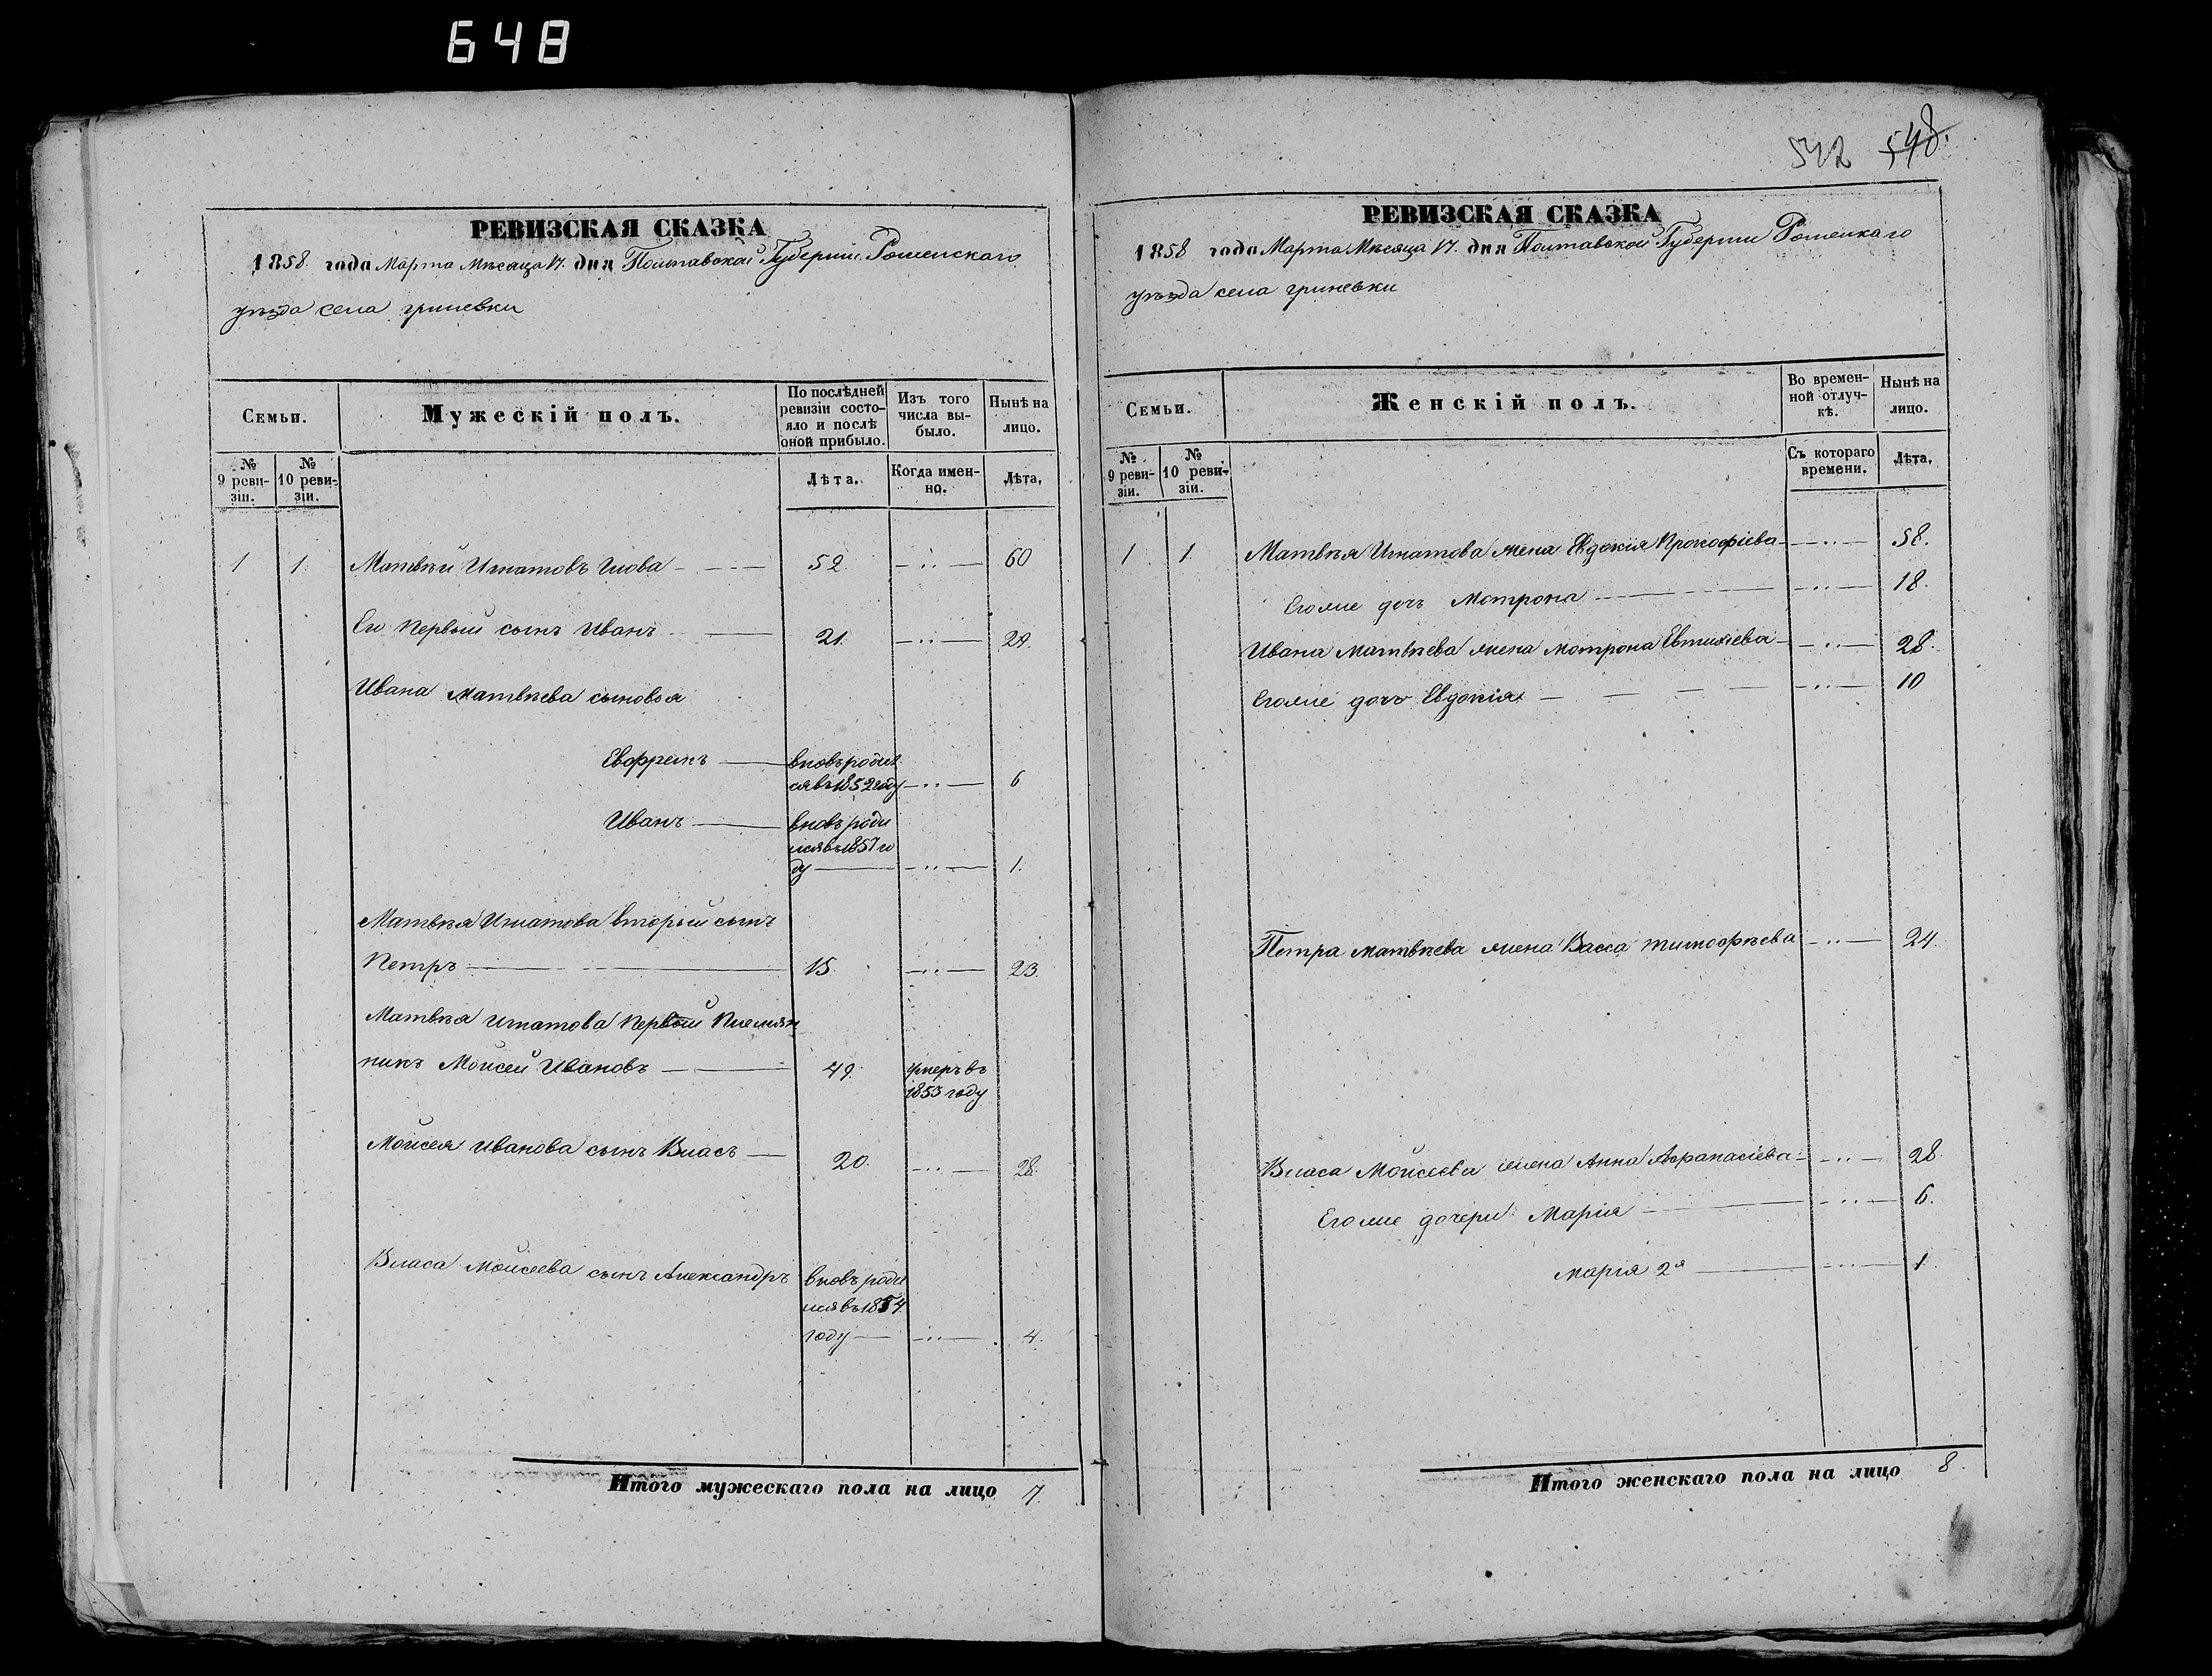 648
542 548.
РЕВИЗСКАЯ СКАЗКА
1858. года Марта Месяца 17. дня Полтавской Губерніи Роменскаго
уѣзда села гриневки
Семьи.
Мужескій полъ.
По послѣдней ревизіи состояло и послѣ оной прибыло.
Изъ того числа выбыло.
Нынѣ на лицо.
№ 9 ревизіи.
№ 10 ревизіи.
Лѣта.
Когда именно.
Лѣта.
1 1. Матвѣй Игнатовъ 52. 60
Его первый сынъ Иванъ 21. 29.
Ивана Матвѣева сыновья
Евфремъ вновь родил
ся въ 1852 году 6
Иванъ вновь роди
лся въ 1857 го
ду 1.
Матвѣя Игнатова вторый сынъ
Петръ 15. 23.
Матвѣя Игнатова первый племян
никъ Мойсей Ивановъ 49. умеръ въ
1853 году
Мойсея Иванова сынъ Власъ 20. 28.
Власа Мойсеева сынъ Александръ вновь роди
лся въ 1854
году 4.
Итого мужескаго пола на лицо 7.
РЕВИЗСКАЯ СКАЗКА
1858 года Марта Мѣсяца 17. дня Полтавской Губерніи Роменскаго
уѣзда села гриневки
Семьи.
Женскій полъ.
Во временной отлучкѣ.
Нынѣ на лицо.
№ 9 ревизіи.
№ 10 ревизіи.
Съ котораго времени.
Лѣта.
1. 1. Матвѣя Игнатова жена Евдокія Прокофіева 58.
Его же дочь Мотрона 18.
Ивана Матвѣева жена Мотрона Евтихіева 28.
Его же дочь Евдокія 10
Петра Матвѣева жена Васса Тимофѣева 24.
Власа Мойсеева жена Анна Афанасіева 28.
Его же дочери Марія 6.
Марія 2я 1
Итого женскаго пола на лицо 8.